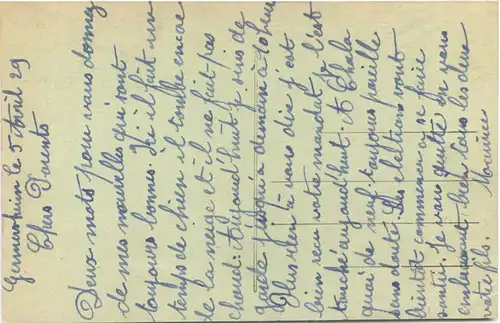 Germersheim le 5 Avril 29
Chers Parents
Deux mots pour vous donner
de mes nouvelles qui sont
toujours bonnes. Ici il fait un
temps de chien il tombe encore
de la neige et il ne fait pas
chaud. Aujourd'huit j suis de
garde jusqu'à demain à 10 heures
Plus rien à vous dire j'est
bien reçu votre mandat je l'est
touché aujourd'huit. A Chala
quoi de neuf toujours pareille
sans doute. Les élections vont
bientôt commencer ça se faire
sentir. Je vous quitte en vous
embrassant bien tous les deux
votre fils. Maurice